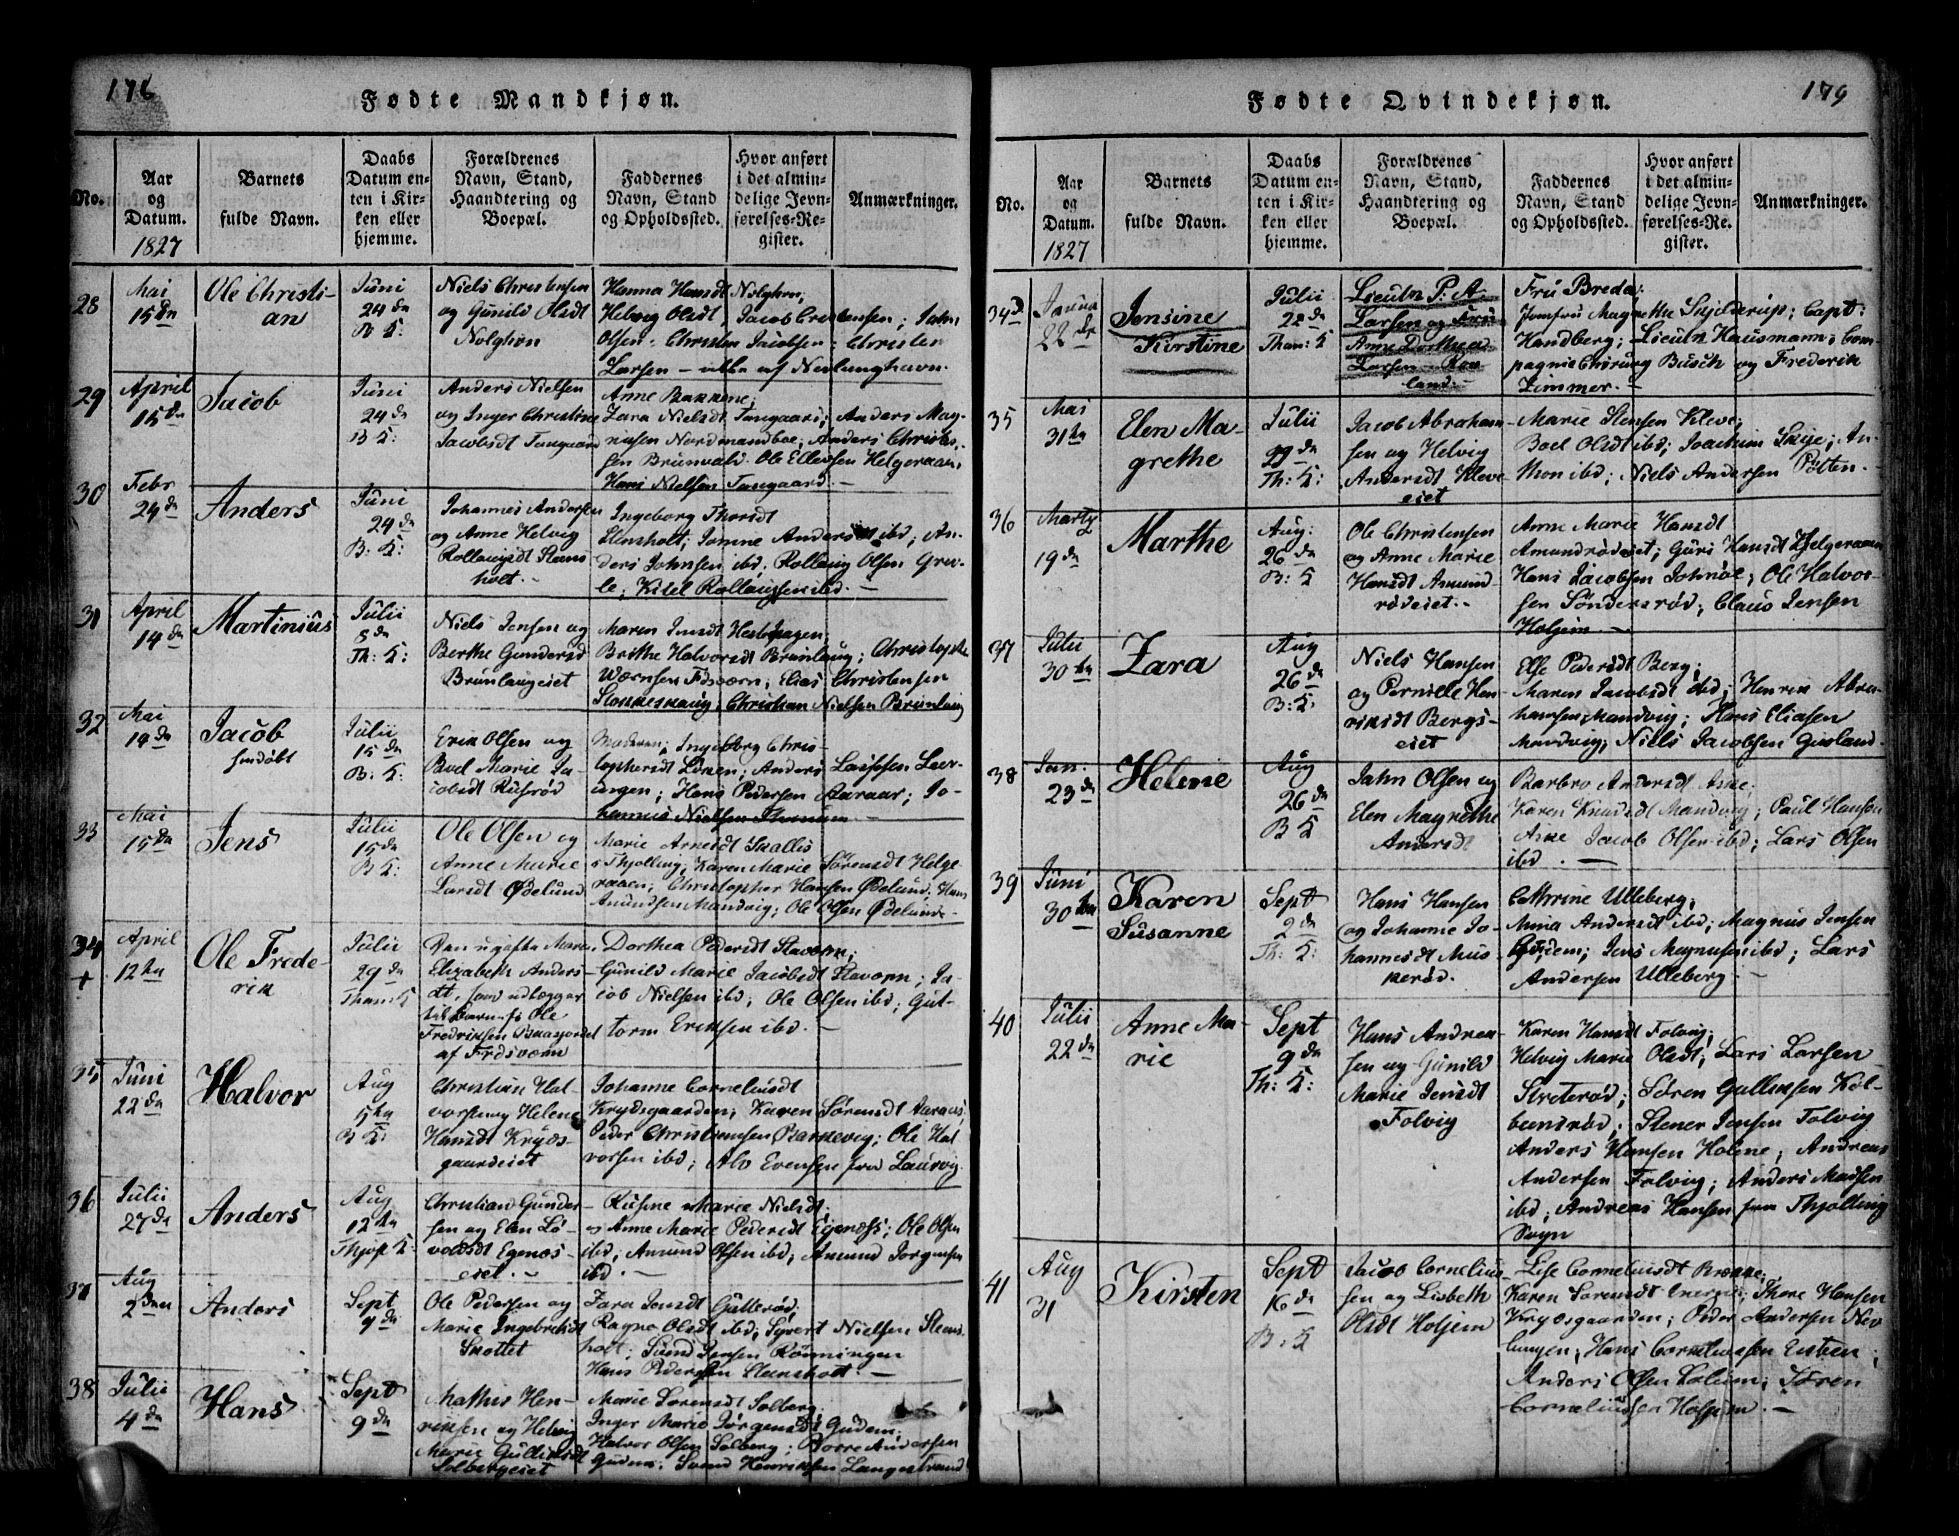 176
Fødte Mandkjøn.
No.
Aar
og
Datum.
1827
Barnets
fulde Navn.
Daabs
Datum en-
ten i Kir-
ken eller
hjemme.
Forældrenes
Navn, Stand,
Haandtering og
Boepæl.
Faddernes
Navn, Stand
og Opholdssted.
Hvor anført
i det almin-
delige Jevn-
førelses-Re-
gister.
Anmærkninger.
28
Mai
15 dn
Ole Christi-
an
Juni
24 de
B K:
Niels Christensen
og Gunild Olsdt
Nolghvn
Hanna Hansdt Nolghvn;
Helvig Olsdt, Jacob Christensen; Jahn
Olsen; Christen Jacobsen; Christen
Larsen - alle af Nevlunghavn.
29
April
15 dn
Jacob
Juni
24 de
B K:
Anders Nielsen
og Inger Christine
Jacobsdt Tangaard
Anne Bakkene;
Zara Nielsdt Tangaard; Anders Mag-
nusen Nordmandboe; Anders Christen-
sen Brunvald. Ole Ellevsen Helgeraaen,
Hans Nielsen Tangaard. -
30
Febr
24 dn
Anders
Juni
24 de
B: K:
Johannes Andersen
og Anne Helvig
Rollaugsdt Stens-
holt. -
Ingeborg Thorsdt
Stensholt; Jomne Andersdt ibd; An-
ders Johnsen ibd. Rollaug Olsen Grev-
le; Kitel Rollaugsen ibd. -
31
April
14 dn
Martinius
Julii
8 de
Th: K:
Niels Jensen og
Berthe Gundersd
Brunlaugeiet
Maren Jensdt
Brithe Halvorsdt Brunlaug; Christopher
Elias Christensen
Christian Nielsen Brunlaug
32
Mai
19 dn
Jacob
hmdøbt
Julii
15 dn
B: K:
Erik Olsen og
Boel Marie Ja-
cobsdt Rusrød
Moderen; Ingeborg Chris-
tophersdt Anders Larssen
Hans Pedersen Aaraar; Jo-
hannes Nielsen
33
Mai
15 dn
Jens
Julii
15 dn
B K:
Ole Olsen og
Anne Marie
Larsdt Ødelund
Marie Arnesdt Skallis
i Thjolling; Karen Marie Sørensdt Helge-
raaen; Christopher Hansen Ødelund; Hans
Amundsen Mandvig; Ole Olsen Ødelund. -
34
+
April
12 te
Ole Frede-
rik
Julii
29 de
Tham: K
Den ugifte Maren
Elizabeth Anders-
dt, som udlægger
til Barnefr Ole
Fredriksen
af Frdsværn
Dorthea Pedersdt Stavern;
Gunild Marie Jacobsdt Stavern; Ja-
cob Nielsen ibd; Ole Olsen ibd; Gut-
torm Eriksen ibd. -
35
Juni
22 dn
Halvor
Aug
5 te
B K:
Christian Hal-
vorsen og Helene
Hansdt Kryds-
gaardeiet
Johanne Corneliusdt
Krydsgaarden; Karen Sørensdt Aaraas;
Peder Christensen Barkevig; Ole Hal-
vorsen ibd; Alv Evensen fra Laurvig.
36
Julii
27 de
Anders
Aug
12 te
Thjøp K
Christian Gunder-
sen og Elen Lø-
voldsdt Egenæs-
eiet. -
Rusine Marie Nielsdt;
Anne Marie Pedersdt Egenæss; Ole Olsen
ibd; Amund Olsen ibd; Amund Jørgensen
ibd. -
37
Aug
2 den
Anders
Sept
9 de
Ole Pedersen og
Marie Ingebretsdt
Skottet
Zara Jensdt Gutterød;
Ragne Olsdt ibd; Syvert Nielsen Stens-
holt; Svend Jensen Rønningen
Hans Pedersen Stensholt. -
38
Julii
4 de
Hans
Sept
9 de
Mathis Hen-
riksen og Helvig
Marie Gulliksdt
Solbergeiet
Marie Sørensdt Solberg;
Inger Marie Jørgensdt Gudem;
Halvor Olsen Solberg; Borre Andersen
Gudem; Svend Henriksen Langestrand
179
Fødte Qvindekjøn.
No.
Aar
og
Datum.
1827
Barnets
fulde Navn.
Daabs
Datum en-
ten i Kir-
ken eller
hjemme.
Forældrenes
Navn, Stand,
Haandtering og
Boepæl.
Faddernes
Navn, Stand
og Opholdssted.
Hvor anført
i det almin-
delige Jevn-
førelses-Re-
gister.
Anmærkninger.
34
22 de
Jensine
Kirstine
Julii
22 de
Tham: K
Lieutn P: A.
Larsen og Fru
Anne Dorthea
Larsen
land. -
Fru Breda;
Jomfru Magrethe Skjelderup; Capt:
Handberg; Lieutn Hausmann; Com-
pagnie Chirurg Busch og Frederik
Zimmer. -
35
Mai
31 te
Elen Ma-
grethe
Julii
29 de
Th: K:
Jacob Abraham-
sen og Helvig
Andersdt Kleve-
eiet
Marie Stensen Kleve;
Boel Olsdt ibd; Joachim Skije; An-
thon ibd; Niels Andersen Pølten. -
36
Marty
19 de
Marthe
Aug:
26 de
B: K
Ole Christensen
og Anne Marie
Hansdt Amund-
rødeiet. -
Anne Marie Hansdt
Amundrødeiet; Guri Hansdt Helgeraaen
Hans Jacobsen Johnsøl; Ole Halvor-
sen Søndersrød; Claus Jensen
Holjem -
37
Julii
30 te
Zara
Aug
26 de
B: K:
Niels Hansen
og Pernille Hen-
riksdt Bergs-
eiet
Else Pedersdt Berg;
Maren Jacobsdt ibd; Henrik Abra-
hamsen Mandvig; Hans Eliasen
Mandvig; Niels Jacobsen Gusland.
38
Jan:
23 de
Helene
Aug
26 de
B K
Jahn Olsen og
Elen Magrethe
Andersdt
Barbro Andersdt Aske;
Karen Knudsdt Mandvig; Paul Hansen
Aske Jacob Olsen ibd; Lars Olsen
ibd. -
39
Juni
30 te
Karen
Susanne
Sept
2 de
Th: K:
Hans Hansen
og Johanne Jo-
hannesdt Mus-
kerød.
Cathrine Ulleberg;
Mina Andersdt ibd; Magnus Jensen
Gusdem; Jens Magnusen ibd; Lars
Andersen Ulleberg. -
40
Julii
22 de
Anne Ma-
rie
Sept
9 de
Th: K:
Hans Andrea-
sen og Gunild
Marie Jensdt
Folvig
Karen Hansdt Folvig;
Helvig Marie Olsdt; Lars Larsen
Søren Gullensen Kol-
bensrød; Stener Jensen Folvig
Anders Hansen Holene; Andreas
Andersen Folvig; Anders Madsen
ibd; Andreas Hansen fra Thjølling
Sogn
41
Aug
31
Kirsten
Sept
16 de
B: K
Jacob Cornelius-
sen og Lisbeth
Olsdt Holjem
Lise Corneliusdt Brekke;
Karen Sørensdt Thore Hansen
Krydsgaarden; Peder Andersen Nev-
lungen; Hans Corneliussen Eusben;
Anders Olsen Søren
Corneliussen Holjem. -